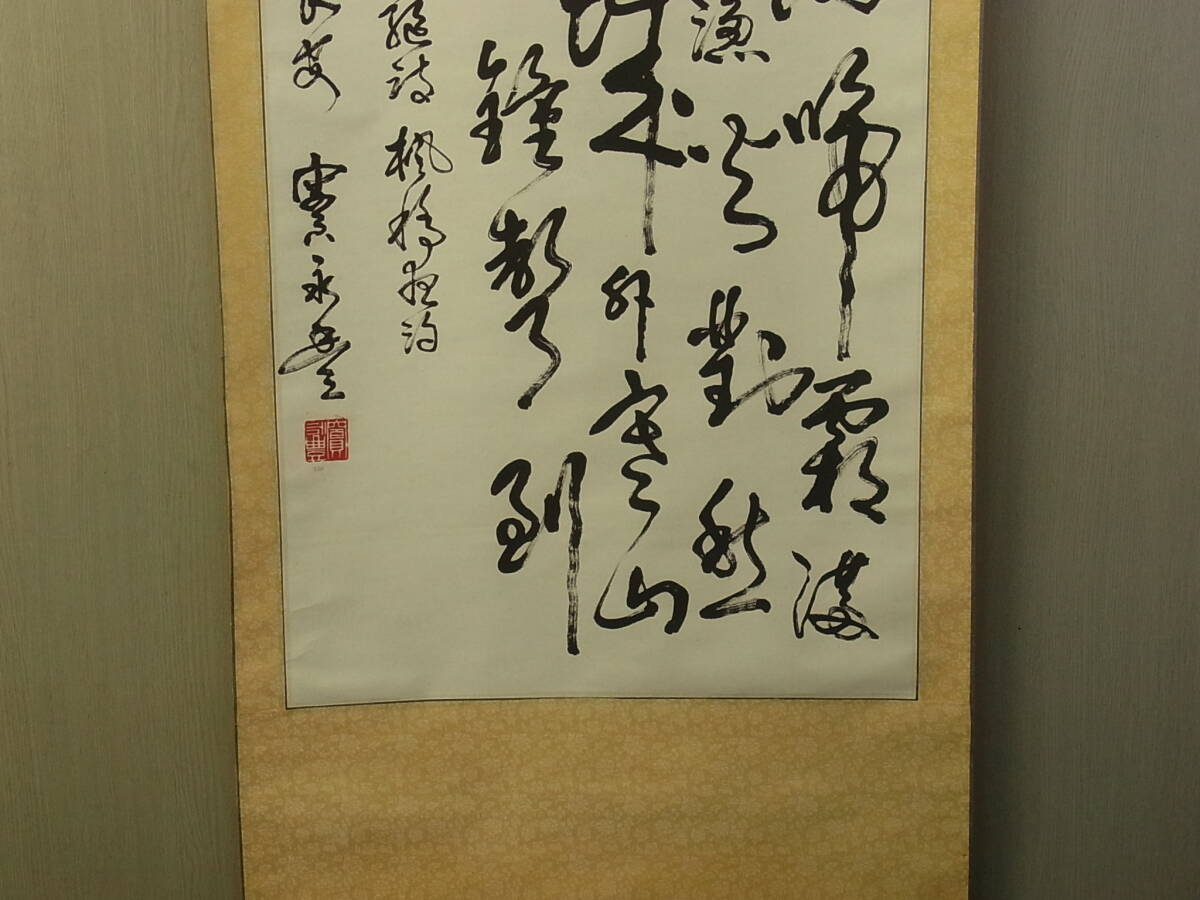 啼霜滿
漁火對愁
城外寒山
鐘聲到
繼詩 楓橋夜泊
長安 竇永